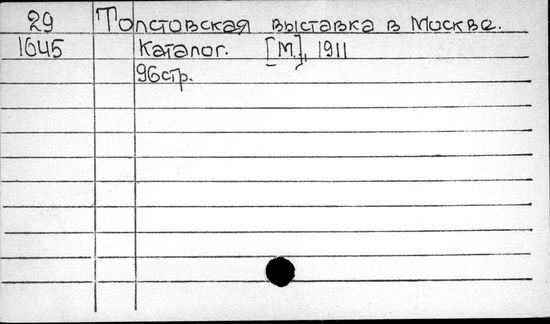 29 Толстовская выставка в Москве.
1645 Каталог. [М.], 1911
96стр.